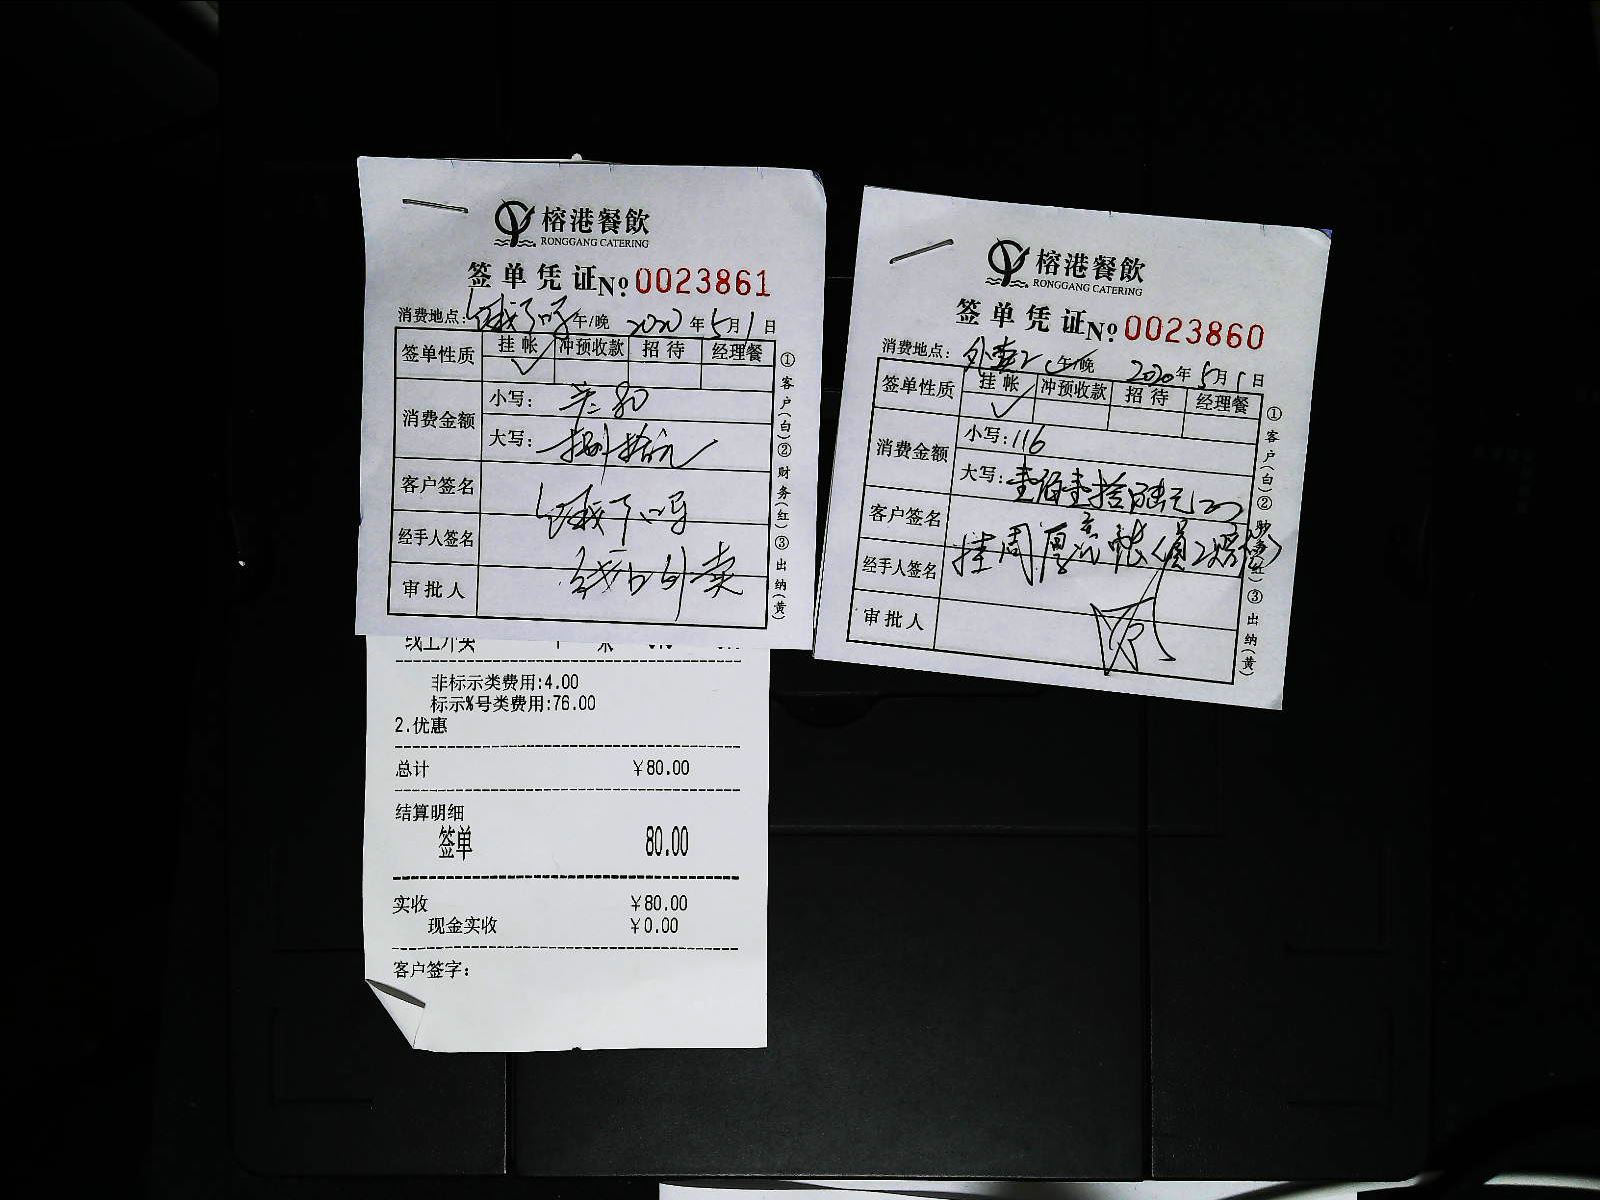 榕港餐飲
RONGGANG CATERING
签单凭证 No 0023861
消费地点: 饿了吗 午/晚 2020年5月1日
签单性质 挂帐 冲预收款 招待 经理餐
✓
消费金额
小写: 80
大写: 捌拾元
客户签名 饿了吗
经手人签名
线上外卖
审批人
①客户(白)②财务(红)③出纳(黄)
线上外卖 1
非标示类费用:4.00
标示%号类费用:76.00
2.优惠
总计 ¥80.00
结算明细
签单 80.00
实收 ¥80.00
现金实收 ¥0.00
客户签字:
榕港餐飲
RONGGANG CATERING
签单凭证 No 0023860
消费地点: 外卖2 午/晚 2020年5月1日
签单性质 挂帐 冲预收款 招待 经理餐
✓
消费金额
小写: 116
大写: 壹佰壹拾陆元
客户签名
挂周厚亮帐
经手人签名
审批人
①客户(白)②财务(红)③出纳(黄)